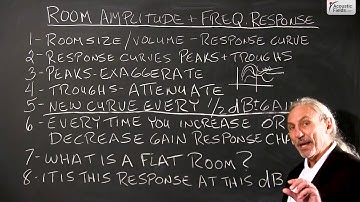 Acoustic Fields
ROOM AMPLITUDE + FREQ RESPONSE
1 - ROOM SIZE / VOLUME - RESPONSE CURVE
2 - RESPONSE CURVES PEAKS + TROUGHS
3 - PEAKS - EXAGGERATE
4 - TROUGHS - ATTENUATE
5 - NEW CURVE EVERY 1/2 dB GAIN
6 - EVERY TIME YOU INCREASE OR
DECREASE GAIN RESPONSE CHA
7 - WHAT IS A FLAT ROOM?
8 - IT IS THIS RESPONSE AT THIS dB